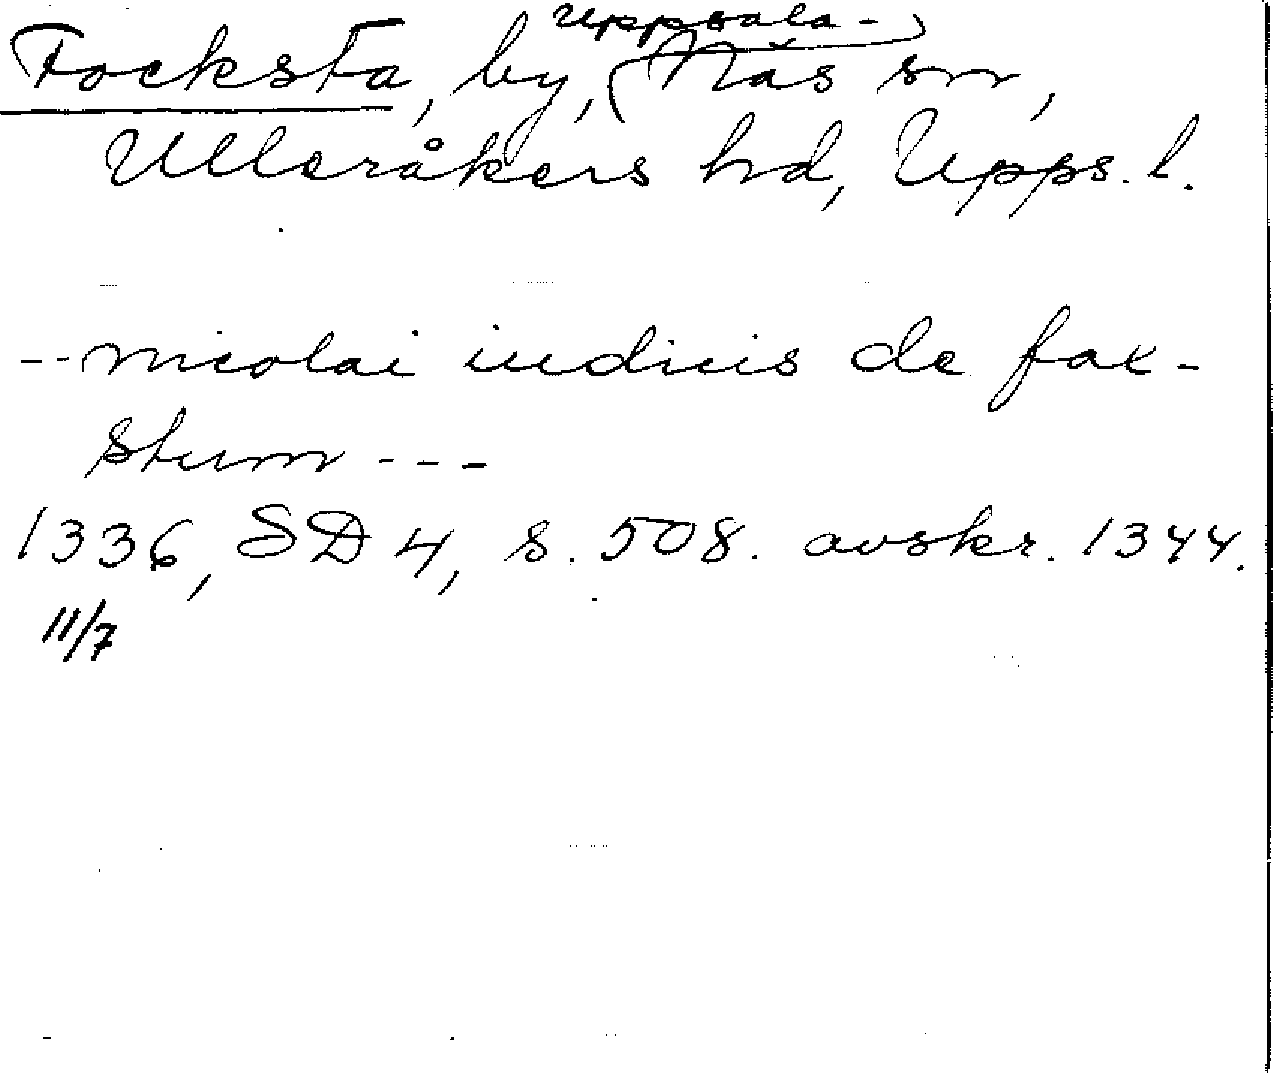 Focksta, by, Uppsala-Näs sn,
Ulleråkers hd, Upps. l.
-- nicolai iudicis de fox-
stum ---
1336, SD 4, s. 508. avskr. 1344.
11/7